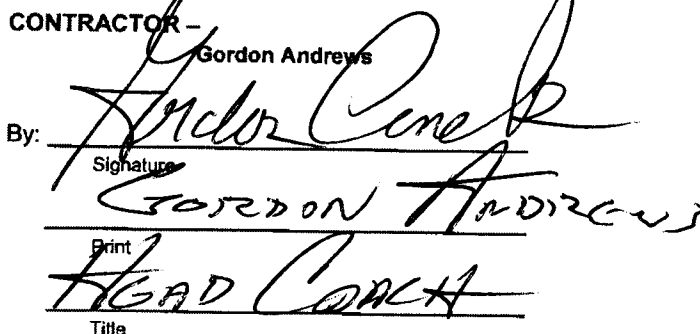 CONTRACTOR –
Gordon Andrews
By:
Signature
GORDON ANDREWS
Print
HEAD COACH
Title